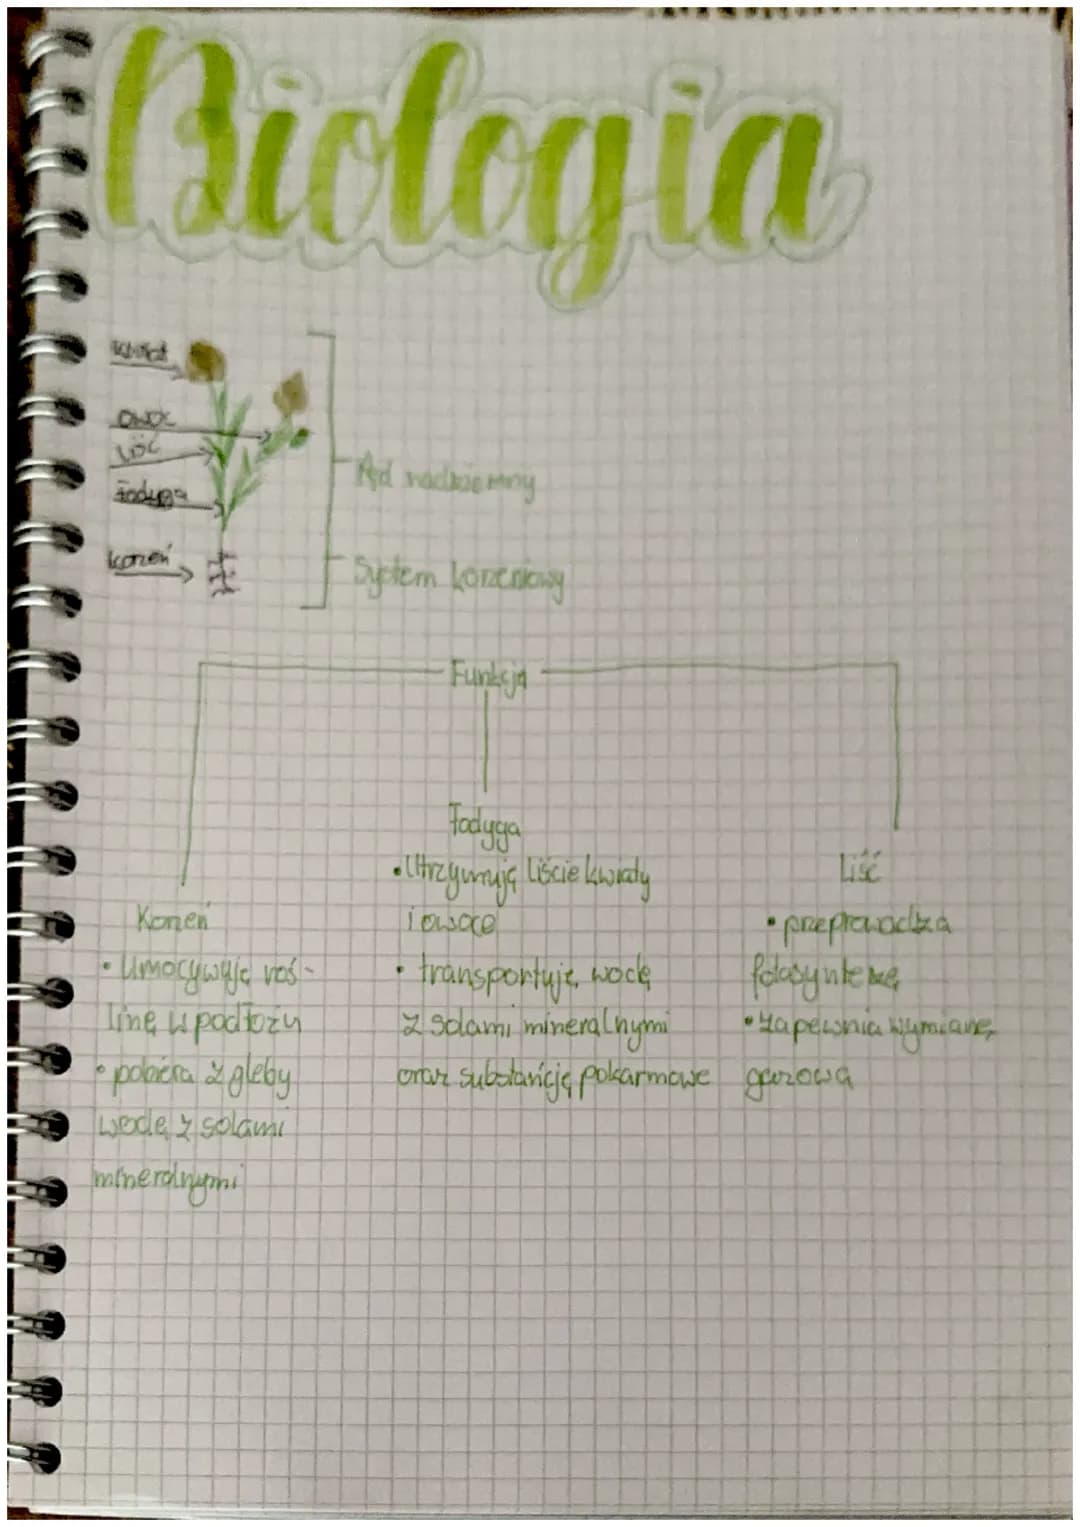 Biologia
kwiat
owoc
liść
Łodyga
korzeń
Pęd nadziemny
System korzeniowy
Funkcja
Łodyga
• Utrzymują liście kwiaty
i owoce
• transportuję wodę
z solami mineralnymi
oraz substancję pokarmowe
Liść
• przeprowadza
fotosyntezę
• zapewnia wymianę
gazową
Korzeń
• Umocywuję roś-
linę w podłożu
• pobiera z gleby
wodę z solami
mineralnymi